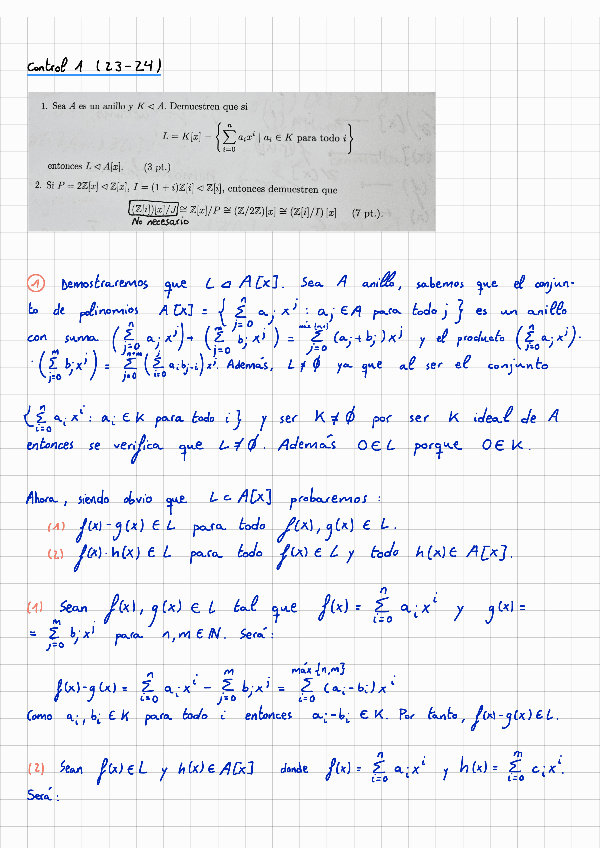 Control 1 (23-24)
1. Sea A es un anillo y K ◁ A. Demuestren que si
L = K[x] = { ∑_{i=0}^{n} a_i x^i | a_i ∈ K para todo i }
entonces L ◁ A[x]. (3 pt.)
2. Si P = 2ℤ[x] ◁ ℤ[x], I = (1 + i)ℤ[i] ◁ ℤ[i], entonces demuestren que
(ℤ[i])[x]/J ≅ ℤ[x]/P ≅ (ℤ/2ℤ)[x] ≅ (ℤ[i]/I)[x] (7 pt.).
No necesario
① Demostraremos que L ◁ A[x]. Sea A anillo, sabemos que el conjun-
to de polinomios A[x] = { ∑_{j=0}^{n} a_j x^j : a_j ∈ A para todo j } es un anillo
con suma (∑_{j=0}^{n} a_j x^j) + (∑_{j=0}^{m} b_j x^j) = ∑_{j=0}^{máx{n,m}} (a_j + b_j) x^j y el producto (∑_{j=0}^{n} a_j x^j) ·
· (∑_{j=0}^{m} b_j x^j) = ∑_{j=0}^{n+m} (∑_{i=0}^{j} a_i b_{j-i}) x^j. Además, L ≠ ∅ ya que al ser el conjunto
{ ∑_{i=0}^{n} a_i x^i : a_i ∈ K para todo i } y ser K ≠ ∅ por ser K ideal de A
entonces se verifica que L ≠ ∅. Además 0 ∈ L porque 0 ∈ K.
Ahora, siendo obvio que L ⊂ A[x] probaremos :
(1) f(x) - g(x) ∈ L para todo f(x), g(x) ∈ L.
(2) f(x) · h(x) ∈ L para todo f(x) ∈ L y todo h(x) ∈ A[x].
(1) Sean f(x), g(x) ∈ L tal que f(x) = ∑_{i=0}^{n} a_i x^i y g(x) =
= ∑_{j=0}^{m} b_j x^j para n, m ∈ ℕ. Será :
f(x) - g(x) = ∑_{i=0}^{n} a_i x^i - ∑_{j=0}^{m} b_j x^j = ∑_{i=0}^{máx{n,m}} (a_i - b_i) x^i
Como a_i, b_i ∈ K para todo i entonces a_i - b_i ∈ K. Por tanto, f(x) - g(x) ∈ L.
(2) Sean f(x) ∈ L y h(x) ∈ A[x] donde f(x) = ∑_{i=0}^{n} a_i x^i y h(x) = ∑_{i=0}^{m} c_i x^i.
Será :